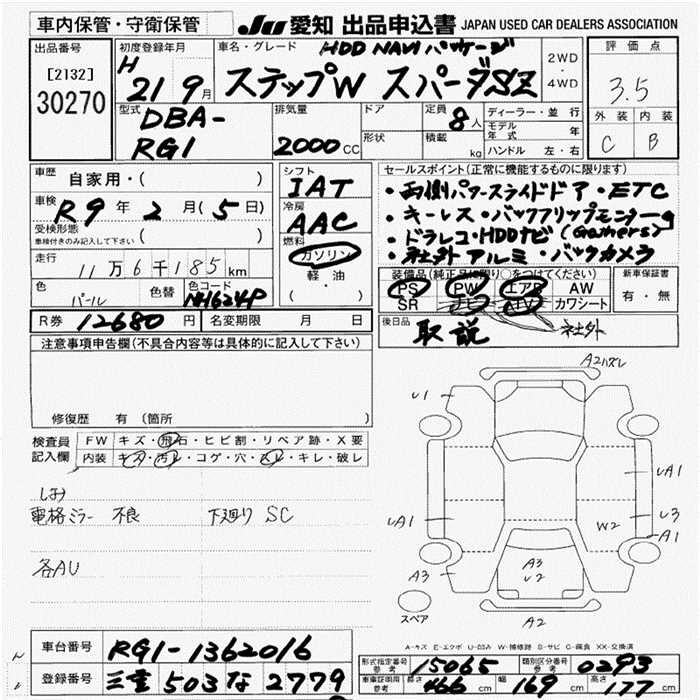 車内保管・守衛保管
JU 愛知 出品申込書 JAPAN USED CAR DEALERS ASSOCIATION
出品番号
[2132]
30270
初度登録年月
H 21 9月
車名・グレード HDD NAVI パッケージ
ステップW スパーダSZ
2WD
・
4WD
評価点
3.5
外装 内装
C B
型式
DBA-
RG1
排気量
2000CC
ドア
形状
定員 8人
積載 kg
ディーラー・並行
モデル年式 年
ハンドル 左・右
車歴 自家用・( )
車検 R9年2月(5日)
受検形態
車検付きのみ記入して下さい ( )
走行 11万6千185km
色 パール
色替
色コード NH624P
シフト
IAT
冷房
AAC
燃料
ガソリン
軽・油
( )
セールスポイント(正常に機能するものに限ります)
・両側パワースライドドア・ETC
・キーレス・バックフリップモニター
・ドラレコ・HDDナビ(Gathers)
・社外アルミ・バックカメラ
装備品(純正品に限り○をつけてください)
PS PW エアB AW
SR ナビ TV カワシート
新車保証書
有・無
R券 12680円
名変期限 月 日
後日品 取説
社外
注意事項申告欄(不具合内容等は具体的に記入して下さい)
修復歴 有 (箇所
検査員
記入欄
FW キズ・飛石・ヒビ割・リペア跡・X要
内装 キズ・汚レ・コゲ・穴・スレ・キレ・破レ
しみ
電格ミラー 不良 下廻り SC
各AU
A2ハズレ
U1
UA1
UA1
W2
U3
A1
A3
A3
U2
A3
A2
スペア
A-キズ E-エクボ U-凹み W-補修跡 S-サビ C-腐食 XX-交換済
車台番号 RG1-1362016
登録番号 三重 503 な 2779
形式指定番号
参考 15065
類別区分番号
参考 0293
車庫証明用
参考
長さ 466cm 幅 169cm 高さ 177cm